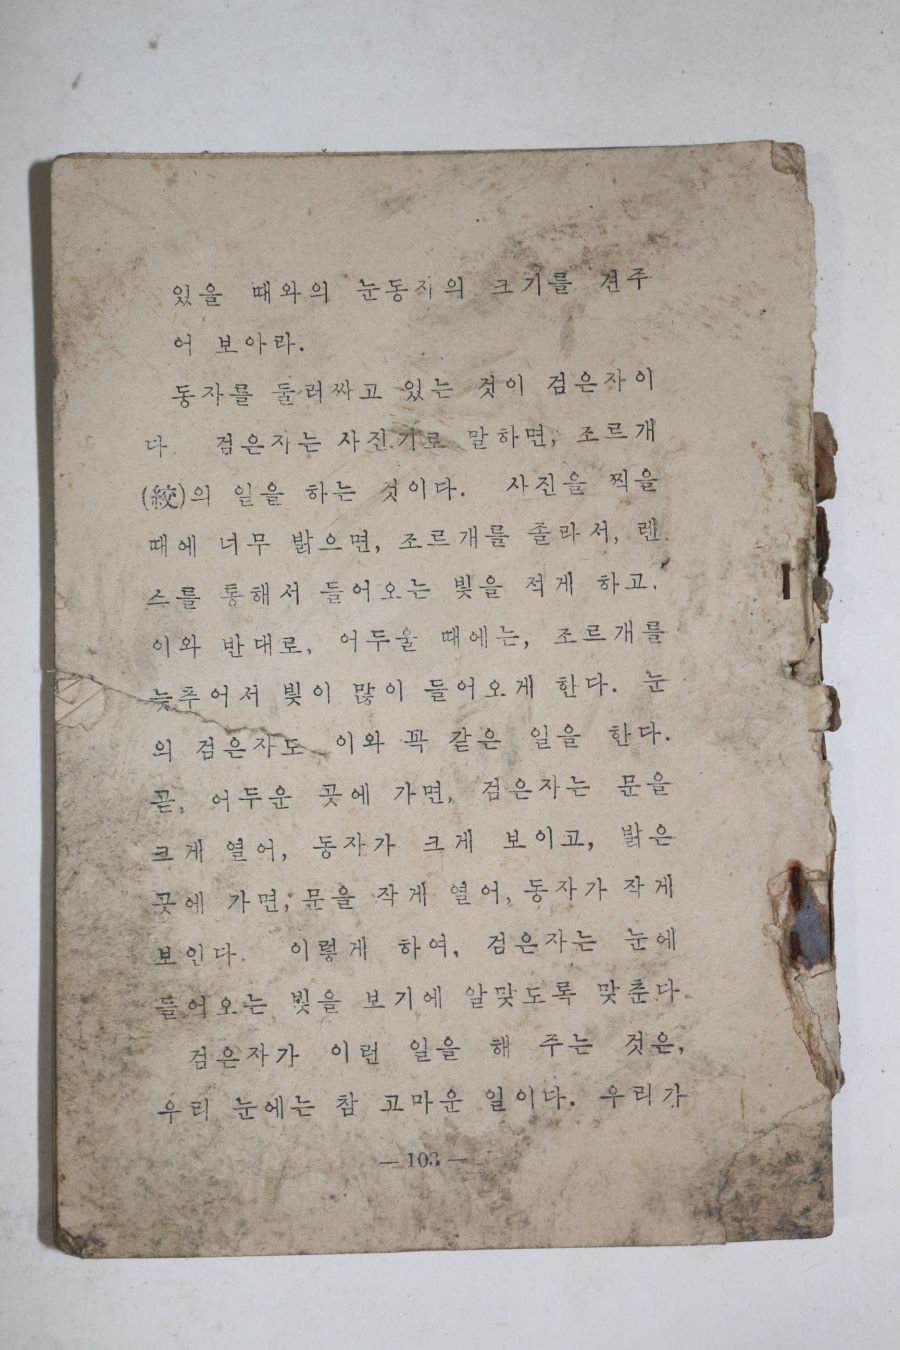 있을 때와의 눈동자의 크기를 견주
어 보아라.
동자를 둘러싸고 있는 것이 검은자이
다. 검은자는 사진기로 말하면, 조르개
(絞)의 일을 하는 것이다. 사진을 찍을
때에 너무 밝으면, 조르개를 졸라서, 렌
스를 통해서 들어오는 빛을 적게 하고,
이와 반대로, 어두울 때에는, 조르개를
늦추어서 빛이 많이 들어오게 한다. 눈
의 검은자도 이와 꼭 같은 일을 한다.
곧, 어두운 곳에 가면, 검은자는 문을
크게 열어, 동자가 크게 보이고, 밝은
곳에 가면, 문을 작게 열어, 동자가 작게
보인다. 이렇게 하여, 검은자는 눈에
들어오는 빛을 보기에 알맞도록 맞춘다.
검은자가 이런 일을 해 주는 것은,
우리 눈에는 참 고마운 일이다. 우리가